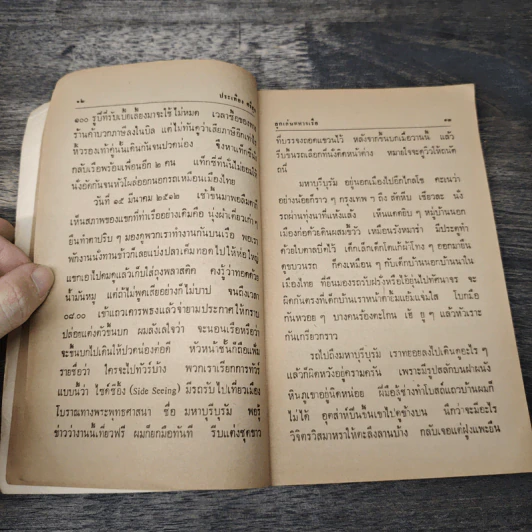 ๑๒ ประเทือง ศรีสุข
๔๐๐ รูปีที่รับเบี้ยเลี้ยงมาจะใช้ไม่หมด เวลาซื้อของตาม
ร้านค้าบวกภาษีลงในบิล แต่ไม่ทันดูว่าเสียภาษีอีกเท่าไร
หิ้วรองเท้าคู่นั้นเดินกันจนปวดน่อง จึงหาแท็กซี่นั่ง
กลับเรือพร้อมเพื่อนอีก ๒ คน แท็กซี่ที่นั่นไม่ยอมให้
นั่งอัดกันจนหัวโผล่ออกนอกรถเหมือนเมืองไทย
วันที่ ๑๕ มีนาคม ๒๕๑๒ เช้าขึ้นมาพอลืมตาก็
เห็นสภาพของแขกที่ทำเรืออย่างเต็มคือ นุ่งผ้าเตี่ยวเก่า ๆ
ยืนทำตาปริบ ๆ มองดูพวกเราทำงานกันบนเรือ พอเรา
พักงานนั่งทานข้าวก็เลยแบ่งปลาเค็มทอดไปให้ห่อใหญ่
แขกเอาไปดมดูแล้วเก็บใส่ถุงพลาสติค คงรู้ว่าทอดด้วย
น้ำมันหมู แต่ถ้าไม่พูดเสียอย่างก็ไม่บาป จนถึงเวลา
๐๘.๐๐ เข้าแถวเคารพธงแล้วจ่ายามประกาศให้ทราบ
ปล่อยแต่งตัวขึ้นบก ผมลังเลใจว่า จะนอนเรือหรือว่า
จะขึ้นบกไปเดินให้ปวดน่องต่อดี หัวหน้าชั้นก็ถือแฟ้ม
รายชื่อว่า ใครจะไปทัวร์บ้าง พวกเราเรียกการทัวร์
แบบนี้ว่า ไซด์ซีอิ้ง (Side Seeing) มีรถรับไปเที่ยวเมือง
โบราณทางพระพุทธศาสนา ชื่อ มหาบุรีบุรัม พอรู้
ข่าวว่างานนี้เที่ยวฟรี ผมก็ยกมือทันที รีบแต่งชุดขาว
ลูกเล่นทหารเรือ ๑๓
ที่บรรจงถอดแขวนไว้ หลังจากขึ้นบกเมื่อวานนี้ แล้ว
รีบขึ้นรถเลือกที่นั่งติดหน้าต่าง หมายใจจะดูวิวให้ถนัด
ถนี่
มหาบุรีบุรัม อยู่นอกเมืองไปอีกไกลโข คะเนว่า
อย่างน้อยก็ราว ๆ กรุงเทพ ฯ ถึง สัตหีบ เชียวละ นั่ง
รถผ่านทุ่งนาที่แห้งแล้ง เห็นแดดยิบ ๆ หมู่บ้านนอก
เมืองก่อด้วยดินผสมขี้วัว เหมือนรังหมาร่า มีประตูทำ
ด้วยใบตาลบี้ดไว้ เด็กเล็กเด็กโตแก้ผ้าโทง ๆ ออกมายืน
ดูขบวนรถ ก็คงเหมือน ๆ กับเด็กบ้านนอกบ้านนาใน
เมืองไทย ที่ยืนมองรถรับฝรั่งหรือไอ้ยุ่นไปทัศนาจร จะ
ผิดกันตรงที่เด็กบ้านเราหน้าดำแย้มแจ่มใส โบกมือ
กันหวอย ๆ บางคนร้องตะโกน เฮ้ ยู ๆ แล้วหัวเราะ
กันเกรียวกราว
รถไปถึงมหาบุรีบุรัม เราทยอยลงไปเดินดูอะไร ๆ
แล้วก็ผิดหวังอยู่ครามครัน เพราะมีรูปสลักบนฝาผนัง
หินภูเขาอยู่นิดหน่อย ฝีมือสู้ช่างทำโบสถ์แถวบ้านผมก็
ไม่ได้ อุตส่าห์ปีนขึ้นเขาไปดูข้างบน นึกว่าจะมีอะไร
วิจิตรวิสมาหราให้ตะลึงลานบ้าง กลับเจอแต่ฝูงแพะยืน